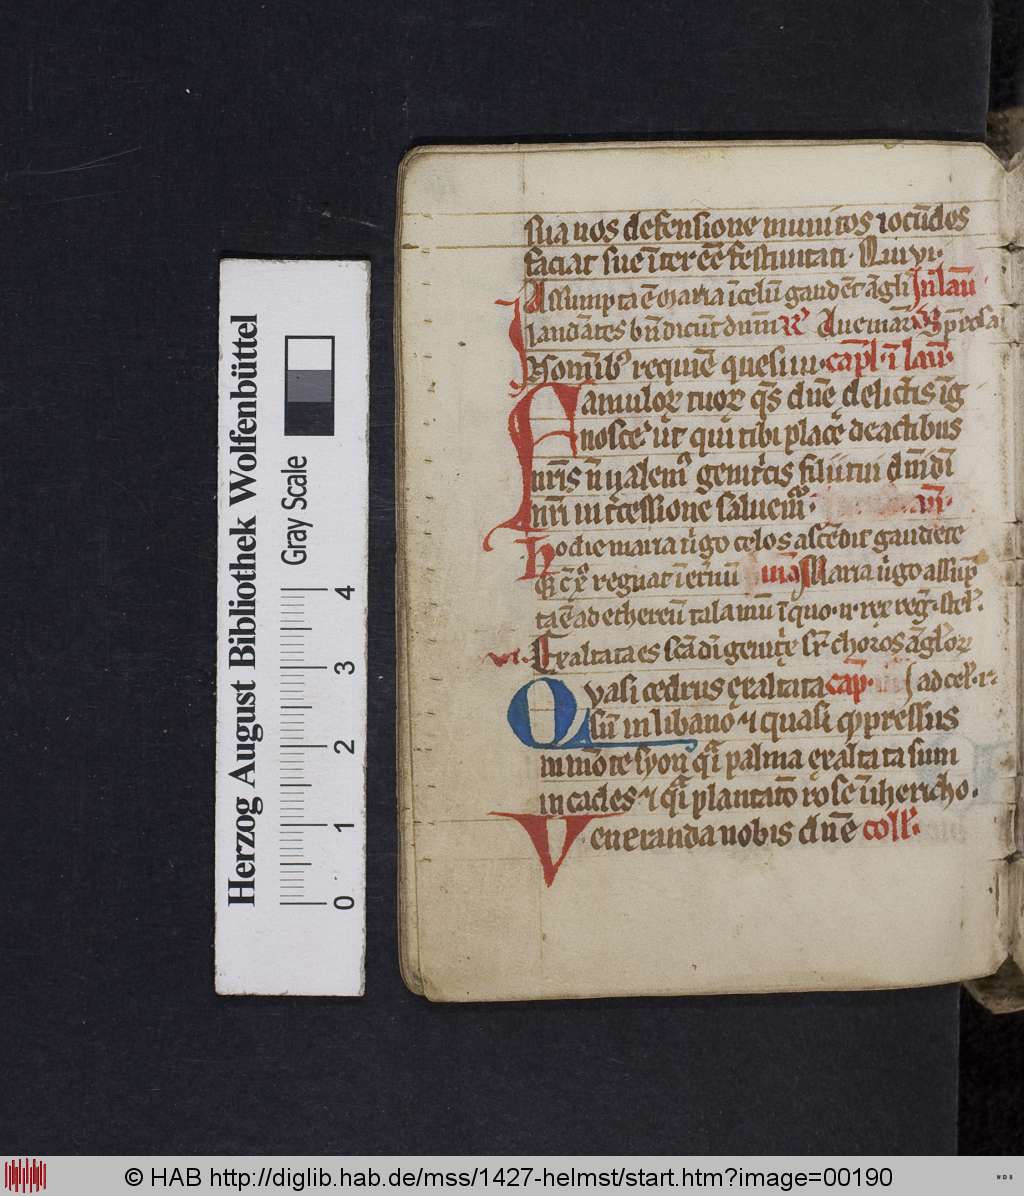 sua nos defensione munitos iocūdes
faciat sue īteręē festiuitati. Qui vi.
Assumpta ē maria ī celū gaudēt āgli Jn lau͞
laudātes bn̄dicūt dnm̄ R' Aue mar
Jn omīb' requiē quesiui. cap̄l. ī lau͞.
Famuloꝝ tuoꝝ q̄s dn̄e delictis īg
nosce ut qui tibi place de actibus
nr̄is n̄ ualem' genitcis filii tui dn̄i dī
nr̄i int̄cessione saluem'. an̄.
Hodie maria ūgo celos ascēdit gaudete
q̄ cū xp̄o regnat ī et̄nū Maria ūgo assūp
ta ē ad ethereū talamū ī quo
Exaltata es sc̄a dī genitͥx sr̄ choros āgl'oꝝ
Quasi cedrus exaltata cap̄. ad cel.
sū in libano ⁊ quasi cypressus
in mōte syon q̄i palma exaltata sum
in cades ⁊ q̄i plantatō rose ī ihericho.
Veneranda nobis dn̄e coll'.
Herzog August Bibliothek Wolfenbüttel
Gray Scale
0 1 2 3 4
© HAB http://diglib.hab.de/mss/1427-helmst/start.htm?image=00190